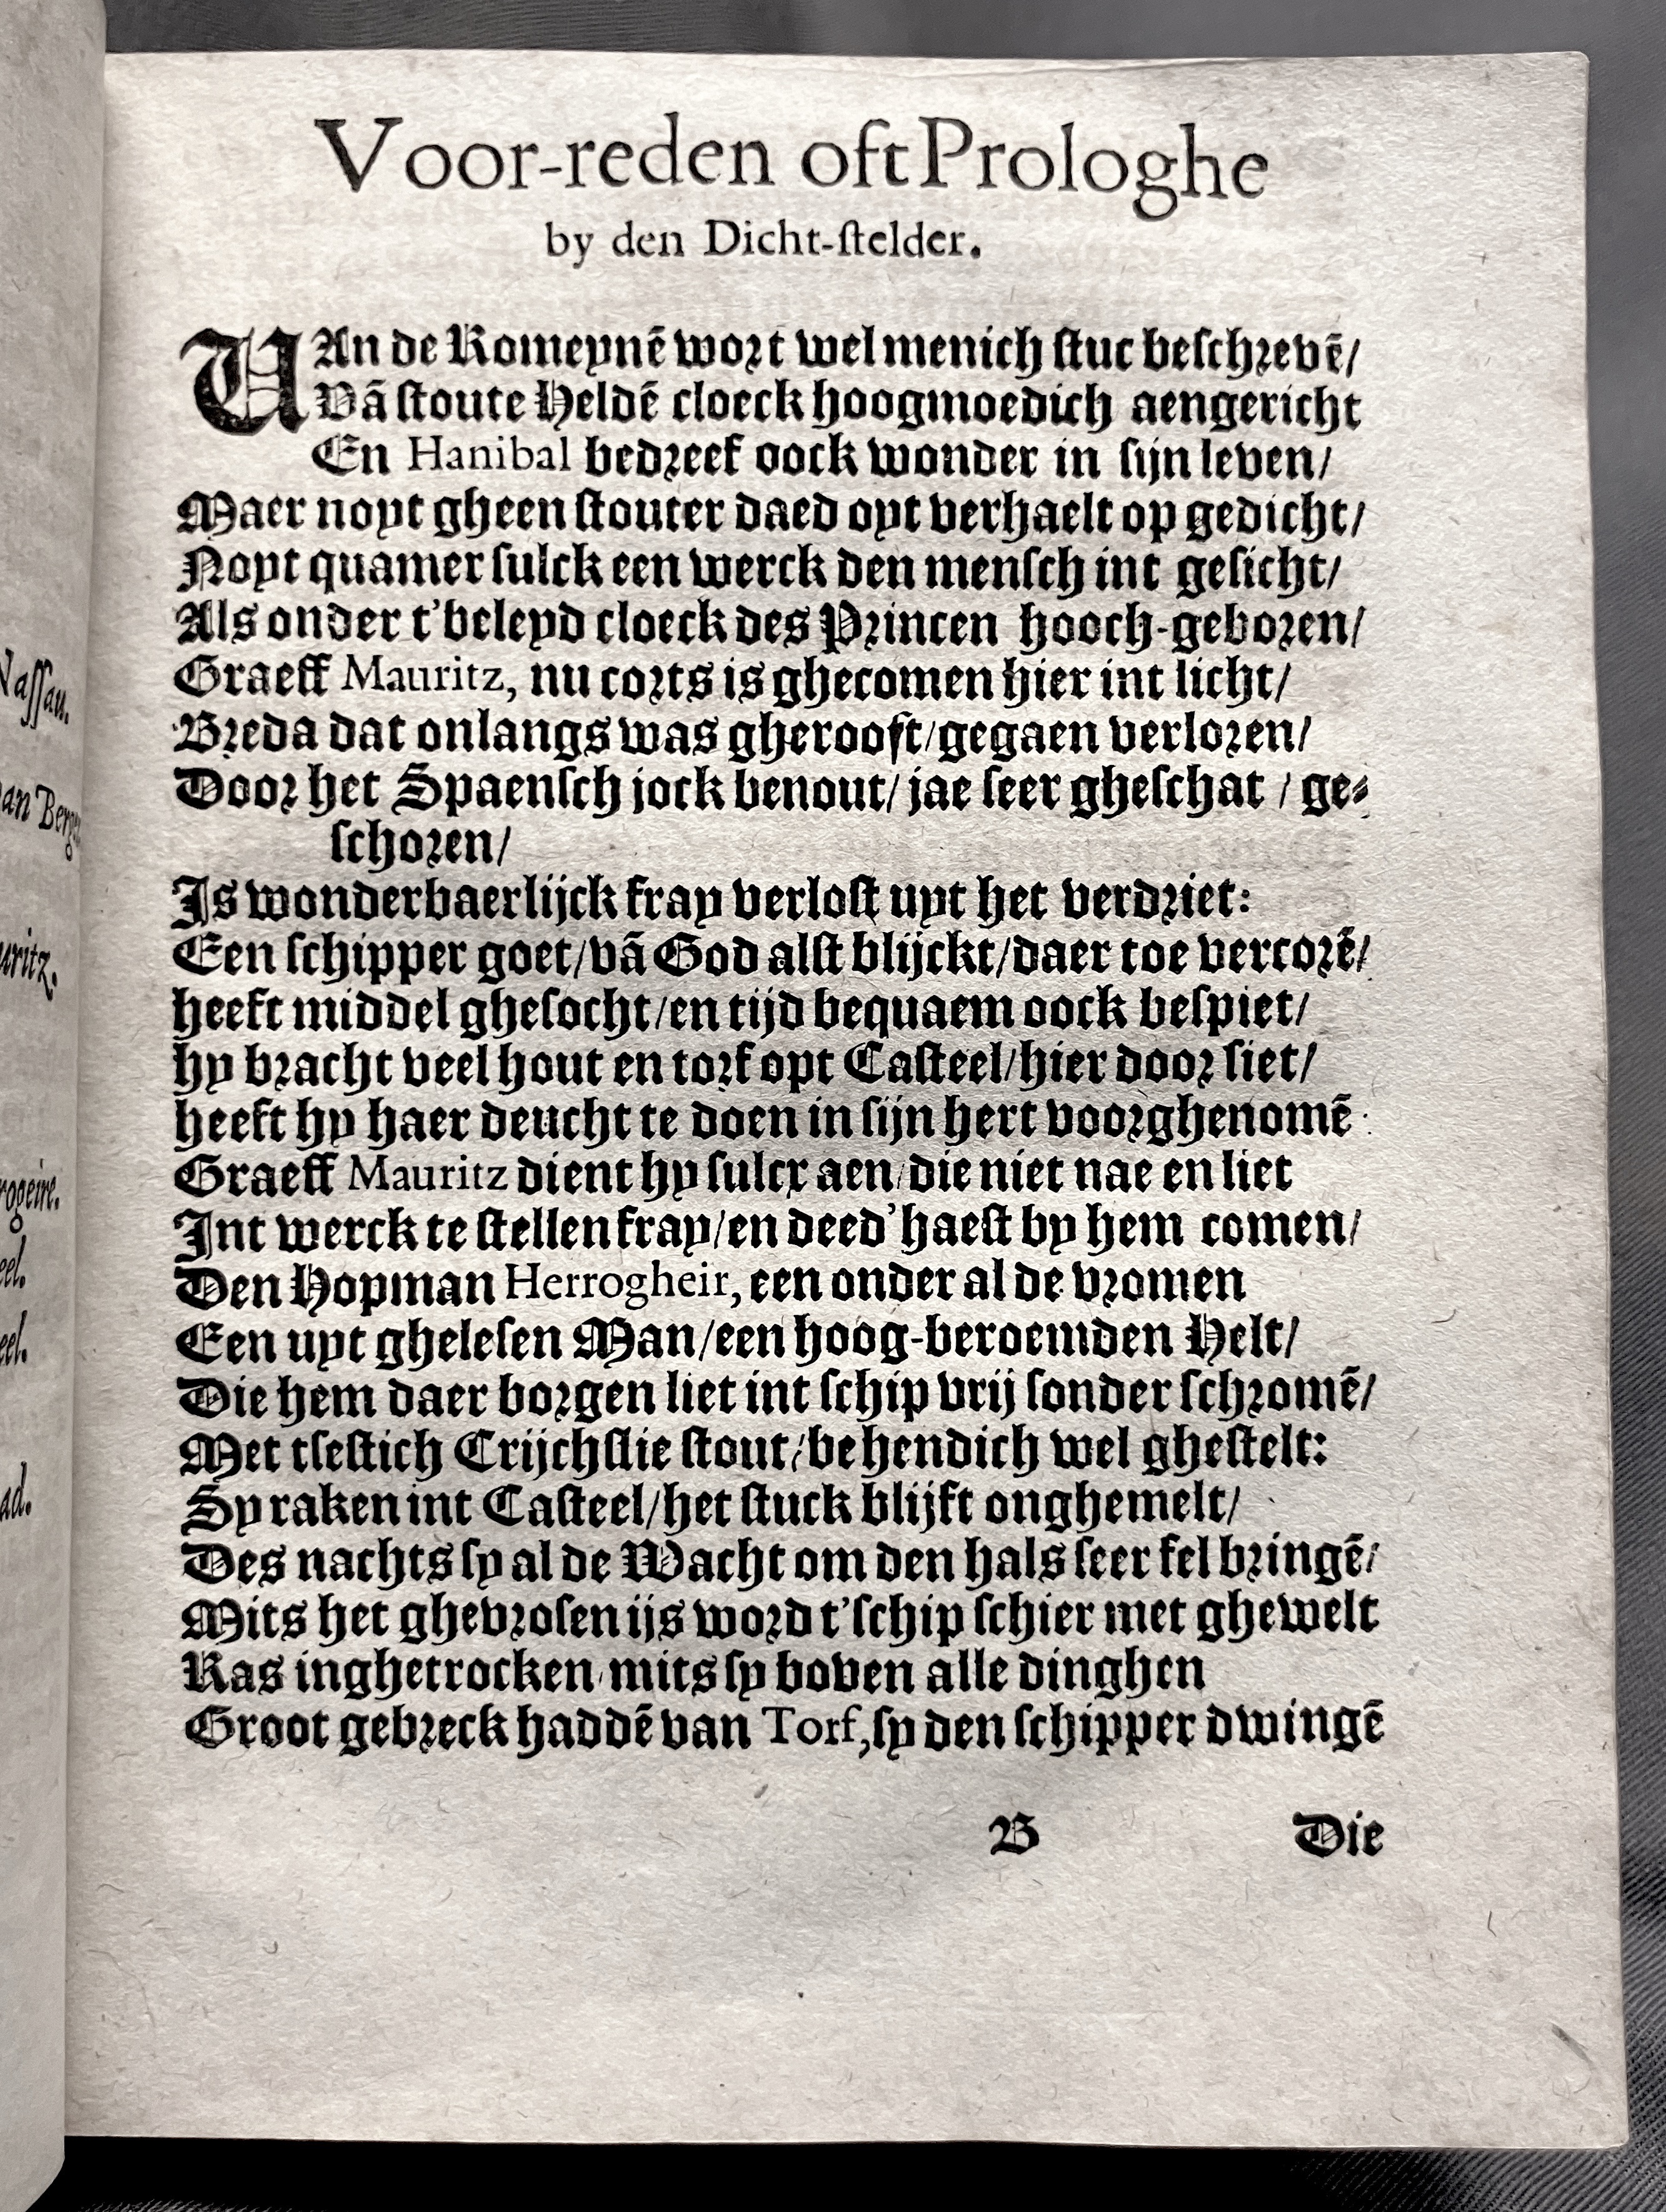 Voor-reden oft Prologhe
by den Dicht-ſtelder.
VAn de Romeynē wort wel menich ſtuc beſchrevē/
Vā ſtoute Heldē cloeck hoogmoedich aengericht
En Hanibal bedreef oock wonder in ſijn leven/
Maer noyt gheen ſtouter daed oyt verhaelt op gedicht/
Noyt quamer ſulck een werck den menſch int geſicht/
Als onder t'beleyd cloeck des Princen hooch-geboren/
Graeff Mauritz, nu corts is ghecomen hier int licht/
Breda dat onlangs was gherooft/gegaen verloren/
Door het Spaenſch jock benout/ jae ſeer gheſchat / ge-
ſchoren/
Is wonderbaerlijck fray verloſt uyt het verdriet:
Een ſchipper goet/vā God alſt blijckt/daer toe vercorē/
heeft middel gheſocht/en tijd bequaem oock beſpiet/
hy bracht veel hout en torf opt Caſteel/hier door ſiet/
heeft hy haer deucht te doen in ſijn hert voorghenomē:
Graeff Mauritz dient hy ſulcx aen/die niet nae en liet
Int werck te ſtellen fray/en deed'haeſt by hem comen/
Den Hopman Herrogheir, een onder al de vromen
Een uyt gheleſen Man/een hoog-beroemden Helt/
Die hem daer borgen liet int ſchip vrij ſonder ſchromē/
Met tſeſtich Crijchſlie ſtout/behendich wel gheſtelt:
Sy raken int Caſteel/het ſtuck blijft onghemelt/
Des nachts ſy al de Wacht om den hals ſeer fel bringē/
Mits het ghevroſen ijs word t'ſchip ſchier met ghewelt
Ras inghetrocken/mits ſy boven alle dinghen
Groot gebreck haddē van Torf,ſy den ſchipper dwingē
B Die
Naſſau.
an Berg
uritz.
rogeire.
eel.
eel.
ad.